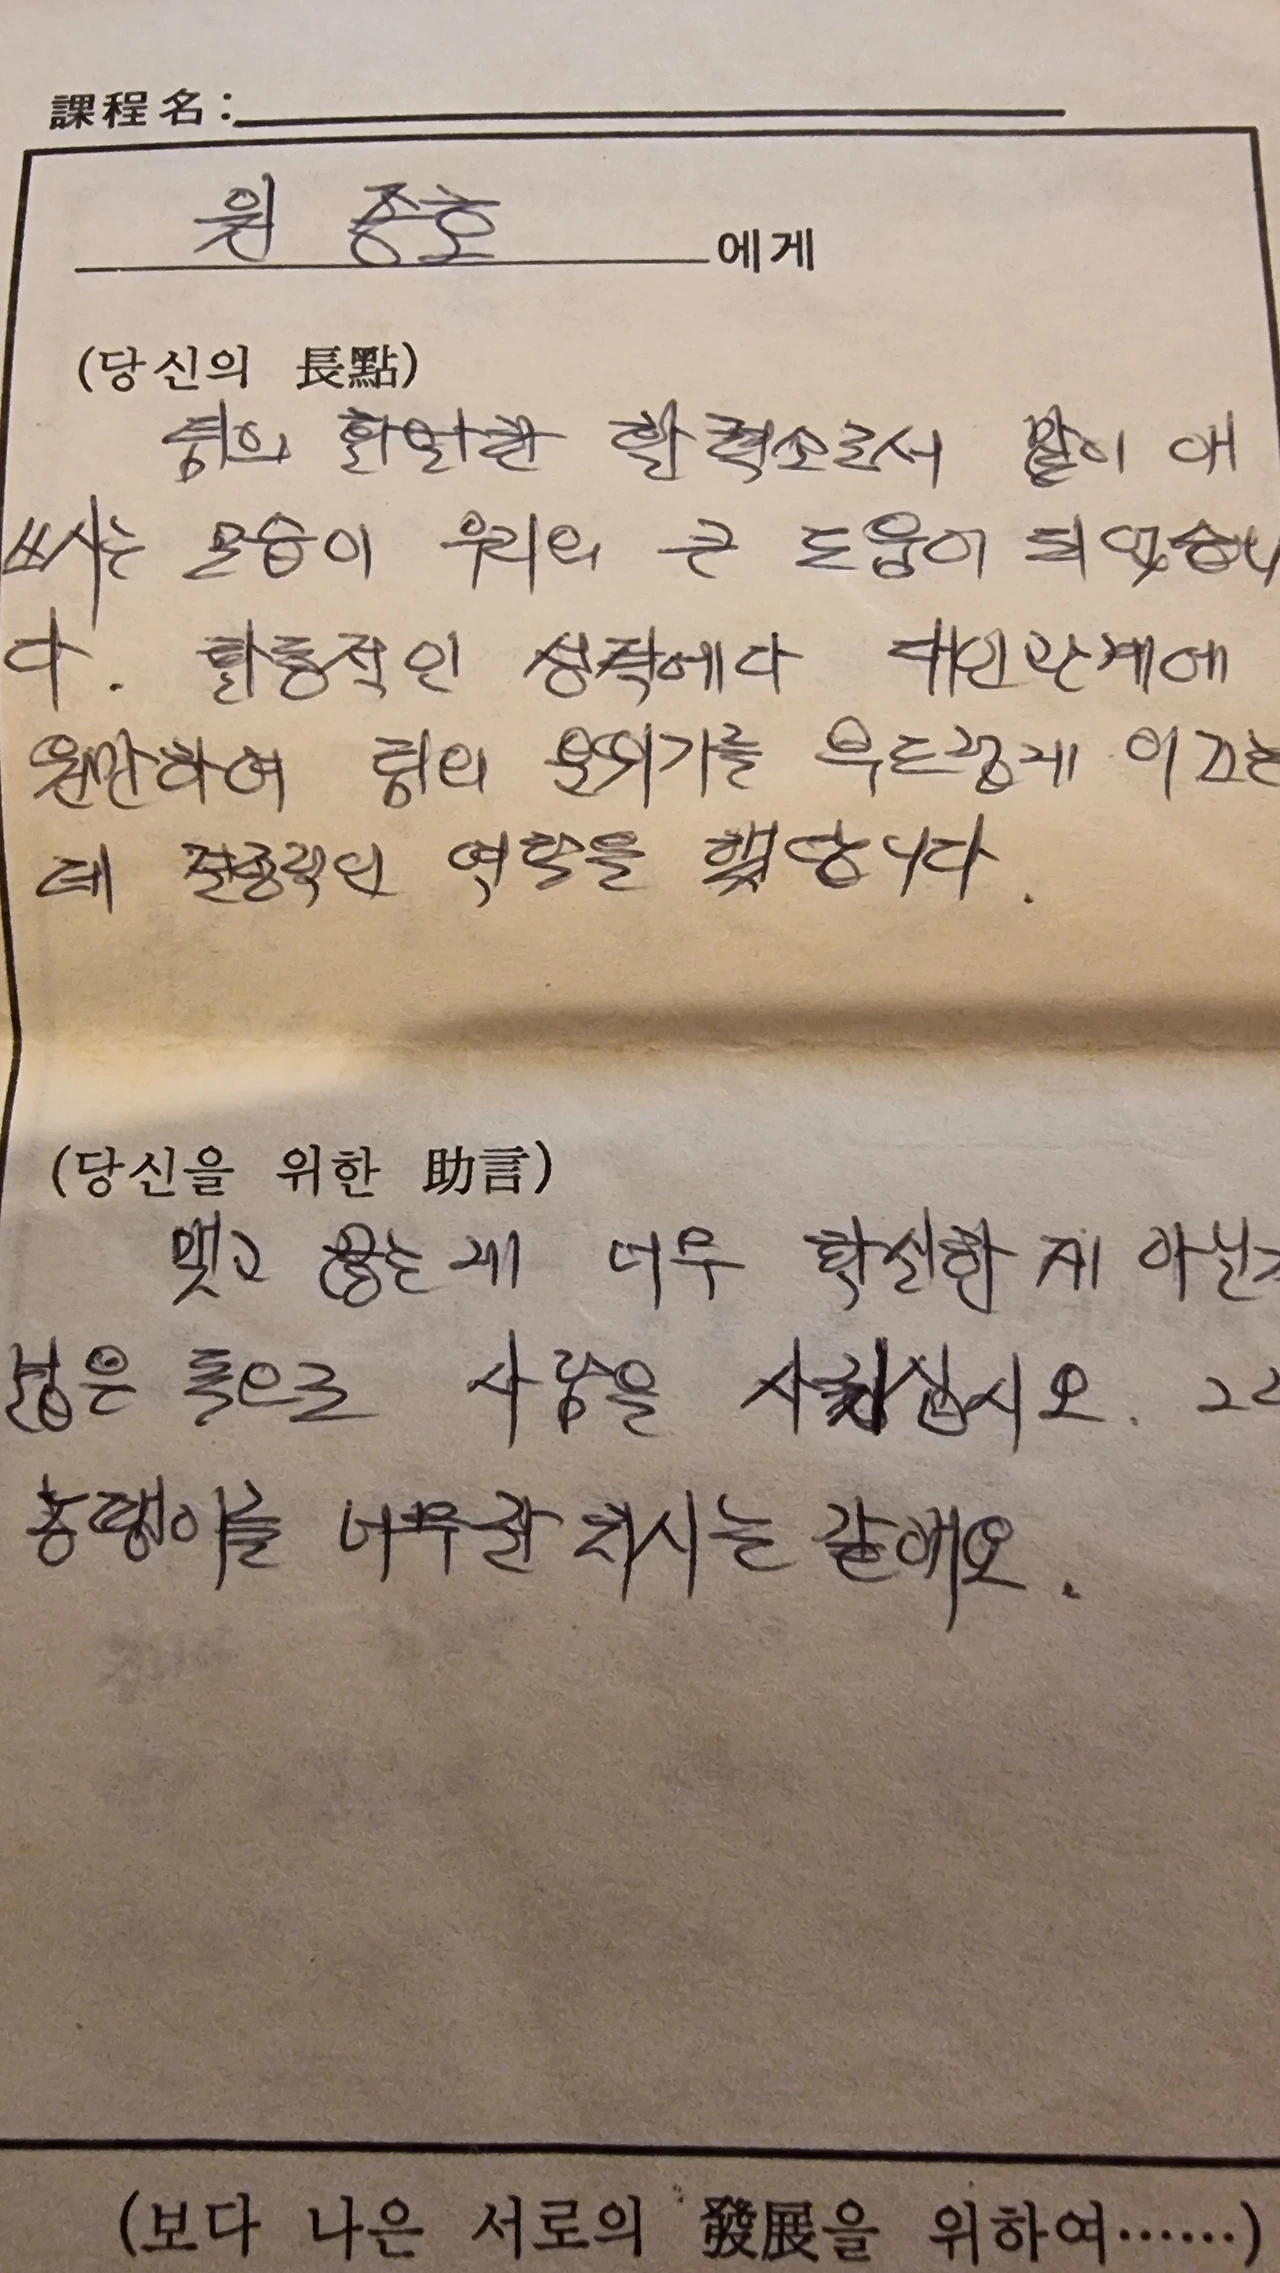 課程名:
원 종호 에게
(당신의 長點)
팀의 활달한 활력소로서 많이 애
쓰시는 모습이 우리의 큰 도움이 되었습니
다. 활동적인 성격에다 대인관계에
원만하여 팀의 분위기를 부드럽게 이끄는
데 역할을 했답니다.
(당신을 위한 助言)
맺고 끊는게 너무 확실한 게 아닌지
넓은 폭으로 사람을 사귀십시오.
농땡이를 너무 치시는 같애요.
(보다 나은 서로의 發展을 위하여……)